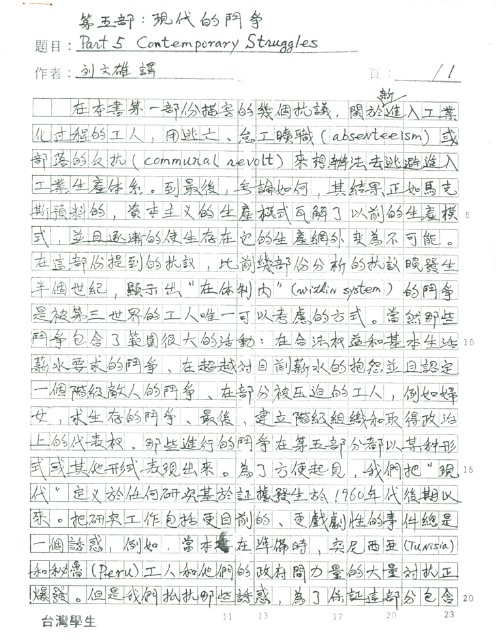 第五部：現代的鬥爭
題目：Part 5 Contemporary Struggles
作者：刘文雄 譯 頁： /1
新
在本書第一部份描害的幾個抗議，関於進入工業
化过程的工人，用逃亡、怠工曠職(absenteeism)或
部落的反抗(communal revolt)來想辦法去逃避進入
工業生產体系。到最後，無論如何，其結果正如馬克
斯預料的，資本主义的生產模式瓦解了以前的生產模 5
式，並且逐漸的使生存在它的生產網外変為不可能。
在這部份提到的抗議，比前幾部份分析的抗議晚發生
半個世紀，顯示出“在体制内”(within system)的鬥爭
是被第三世界的工人唯一可以考慮的方式。當然那些
鬥爭包含了範圍很大的活動：在合法权益和基本生活 10
薪水要求的鬥爭、在超越对目前薪水的抱怨並且認定
一個階級敵人的鬥爭、在部分被压迫的工人，例如婦
女，求生存的鬥爭、最後，建立階級組織和取得政治
上的代表权。那些進行的鬥爭在第五部分都以某种形
式或其他形式表現出來。為了方便起見，我們把“現 15
代”定义於任何研究基於証據發生於1960年代後期以
來。把研究工作包括更目前的、更戲劇性的事件總是
一個誘惑，例如，當本 在準備時，突尼西亞(Tunisia)
和秘魯(Peru)工人和他們的政府間力量的大量对抗正
爆發。但是我們抵抗那些誘惑，為了保証這部分包含 20
台灣學生 11 13 23